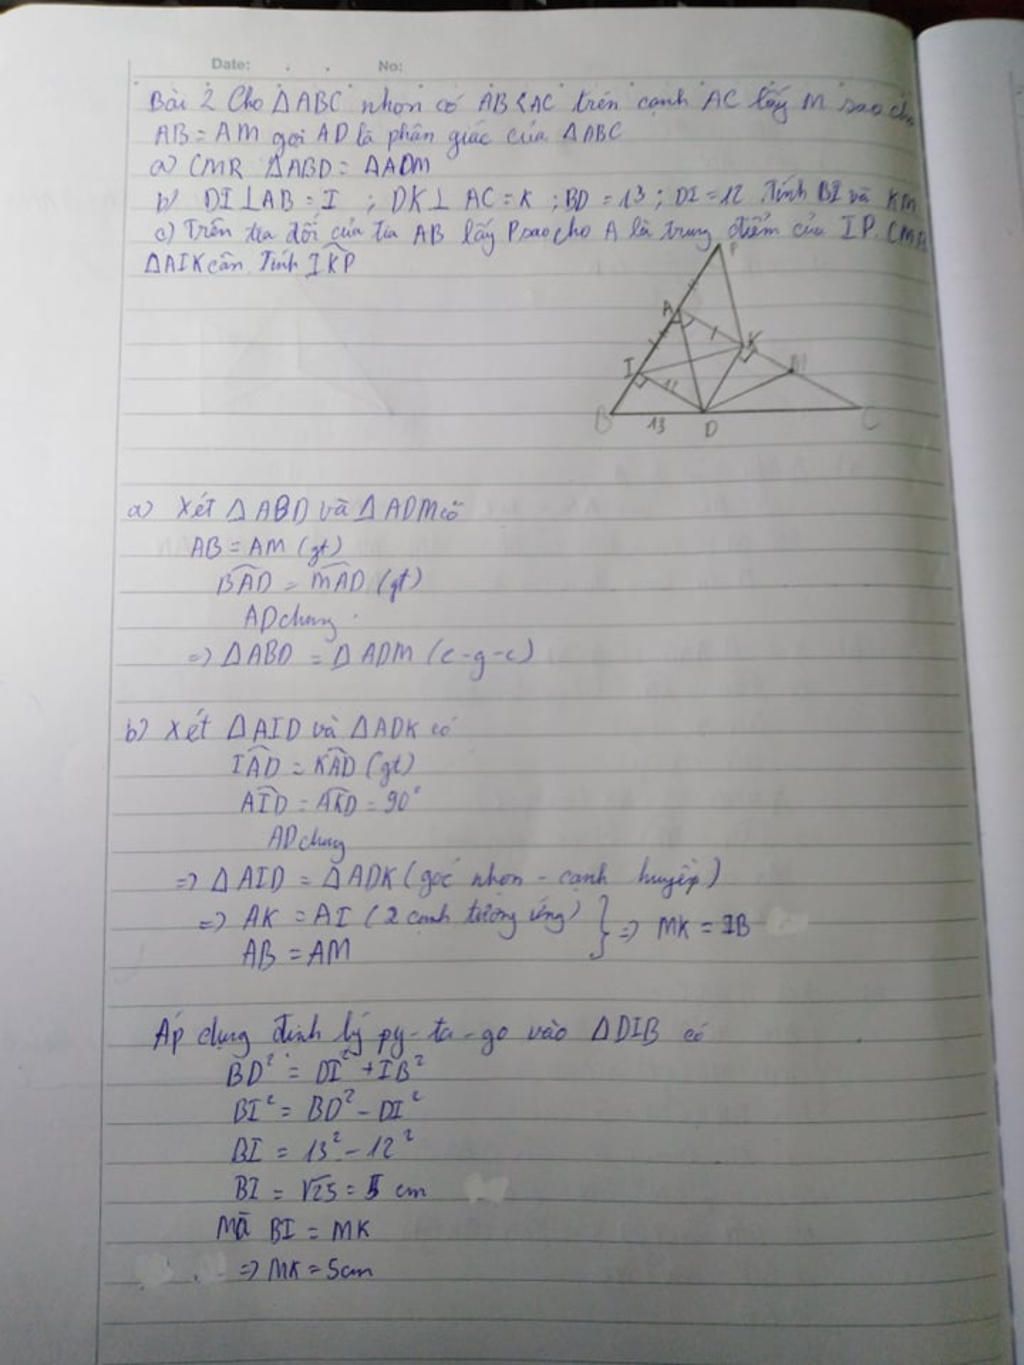 Date: . . No:
Bài 2 Cho ΔABC nhọn có AB < AC trên cạnh AC lấy M sao cho
AB = AM gọi AD là phân giác của ΔABC
a) CMR ΔABD = ΔADM
b) DI ⊥ AB = I ; DK ⊥ AC = K ; BD = 13 ; DI = 12 Tính BI và KM
c) Trên tia đối của tia AB lấy P sao cho A là trung điểm của IP. CMR
ΔAIK cân Tính IKP
P
A
K
I
M
12
B
13
D
C
a) Xét ΔABD và ΔADM có
AB = AM (gt)
BAD = MAD (gt)
AD chung
=> ΔABD = ΔADM (c-g-c)
b) Xét ΔAID và ΔADK có
IAD = KAD (gt)
AID = AKD = 90°
AD chung
=> ΔAID = ΔADK (góc nhọn - cạnh huyền)
=> AK = AI (2 cạnh tương ứng) } => MK = IB
AB = AM
Áp dụng định lý py-ta-go vào ΔDIB có
BD² = DI² + IB²
BI² = BD² - DI²
BI = 13² - 12²
BI = √25 = 5 cm
Mà BI = MK
=> MK = 5cm